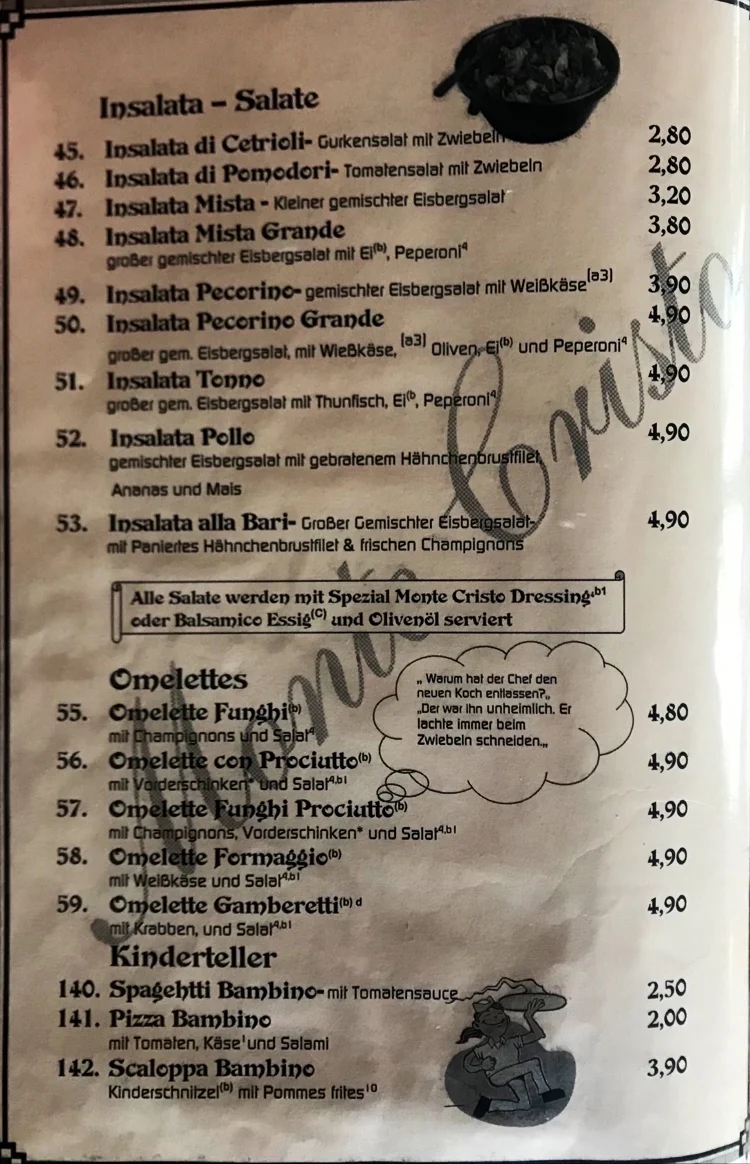 Insalata – Salate
45. Insalata di Cetrioli- Gurkensalat mit Zwiebeln 2,80
46. Insalata di Pomodori- Tomatensalat mit Zwiebeln 2,80
47. Insalata Mista - Kleiner gemischter Eisbergsalat 3,20
48. Insalata Mista Grande 3,80
großer gemischter Eisbergsalat mit Ei(b), Peperoni4
49. Insalata Pecorino- gemischter Eisbergsalat mit Weißkäse(a3) 3,90
50. Insalata Pecorino Grande 4,90
großer gem. Eisbergsalat, mit Wießkäse, (a3) Oliven, Ei(b) und Peperoni4
51. Insalata Tonno 4,90
großer gem. Eisbergsalat mit Thunfisch, Ei(b, Peperoni4
52. Insalata Pollo 4,90
gemischter Eisbergsalat mit gebratenem Hähnchenbrustfilet,
Ananas und Mais
53. Insalata alla Bari- Großer Gemischter Eisbergsalat- 4,90
mit Paniertes Hähnchenbrustfilet & frischen Champignons
Alle Salate werden mit Spezial Monte Cristo Dressing4,b1
oder Balsamico Essig(C) und Olivenöl serviert
Omelettes
55. Omelette Funghi(b) 4,80
mit Champignons und Salat4
56. Omelette con Prociutto(b) 4,90
mit Vorderschinken* und Salat4,b1
57. Omelette Funghi Prociutto(b) 4,90
mit Champignons, Vorderschinken* und Salat4,b1
58. Omelette Formaggio(b) 4,90
mit Weißkäse und Salat4,b1
59. Omelette Gamberetti(b) d 4,90
mit Krabben, und Salat4,b1
„ Warum hat der Chef den
neuen Koch entlassen?„
„Der war ihn unheimlich. Er
lachte immer beim
Zwiebeln schneiden.„
Kinderteller
140. Spagehtti Bambino- mit Tomatensauce 2,50
141. Pizza Bambino 2,00
mit Tomaten, Käse1 und Salami
142. Scaloppa Bambino 3,90
Kinderschnitzel(b) mit Pommes frites10
Monte Cristo